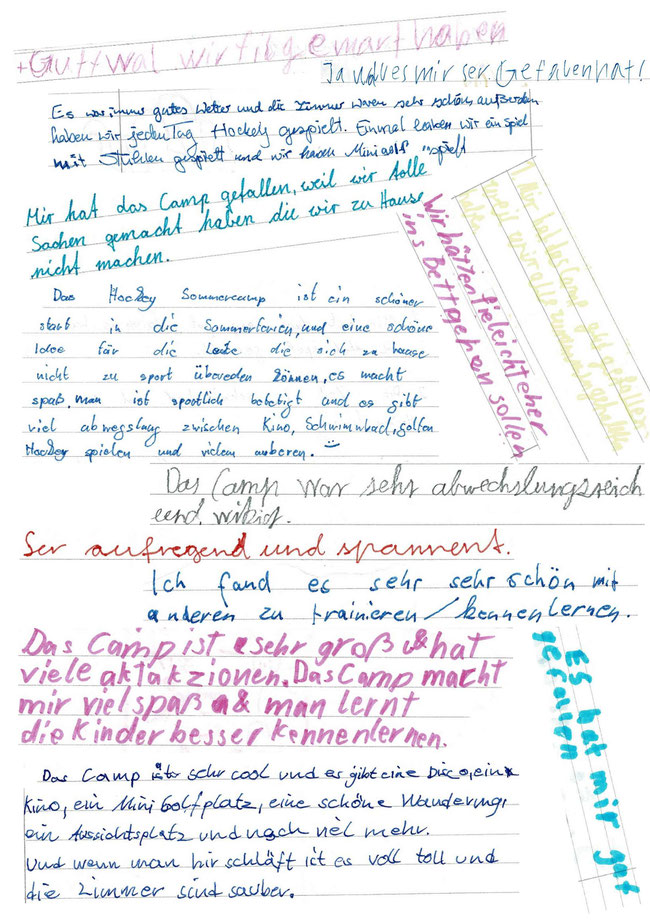 +Gutt wal wir fil gemart haben
Ja und es mir ser Gefalen hat!
Es war immer gutes Wetter und die Zimmer waren sehr schön außerdem
haben wir jeden Tag Hockey gespielt. Einmal haben wir ein Spiel
mit Stühlen gespielt und wir haben Minigolf gespielt
Mir hat das Camp gefallen, weil wir tolle
Sachen gemacht haben die wir zu Hause
nicht machen.
Wir hätten fieleicht eher
ins Bett gehen sollen
Mir hat das Camp gut gefallen,
weil wir alle
haben
Das Hockey Sommercamp ist ein schöner
start in die Sommerferien, und eine schöne
Idee für die Leute die sich zu hause
nicht zu sport überreden können, es macht
spaß, man ist sportlich betetigt und es gibt
viel abwegslung zwischen Kino, Schwimmbad, golfen
Hockey spielen und vielem anderen.
Das Camp war sehr abwechslungsreich
und witzig.
Ser aufregend und spannent.
Ich fand es sehr sehr schön mit
anderen zu trainieren/kennenlernen.
Das Camp ist sehr groß & hat
viele aktakzionen. Das Camp macht
mir viel spaß & man lernt
die Kinder besser kennenlernen.
Es hat mir gut
gefallen
Das Camp ist sehr cool und es gibt eine Disco, ein
Kino, ein Minigolfplatz, eine schöne Wanderung,
ein Aussichtsplatz und noch viel mehr.
Und wenn man hir schläft ist es voll toll und
die Zimmer sind sauber.